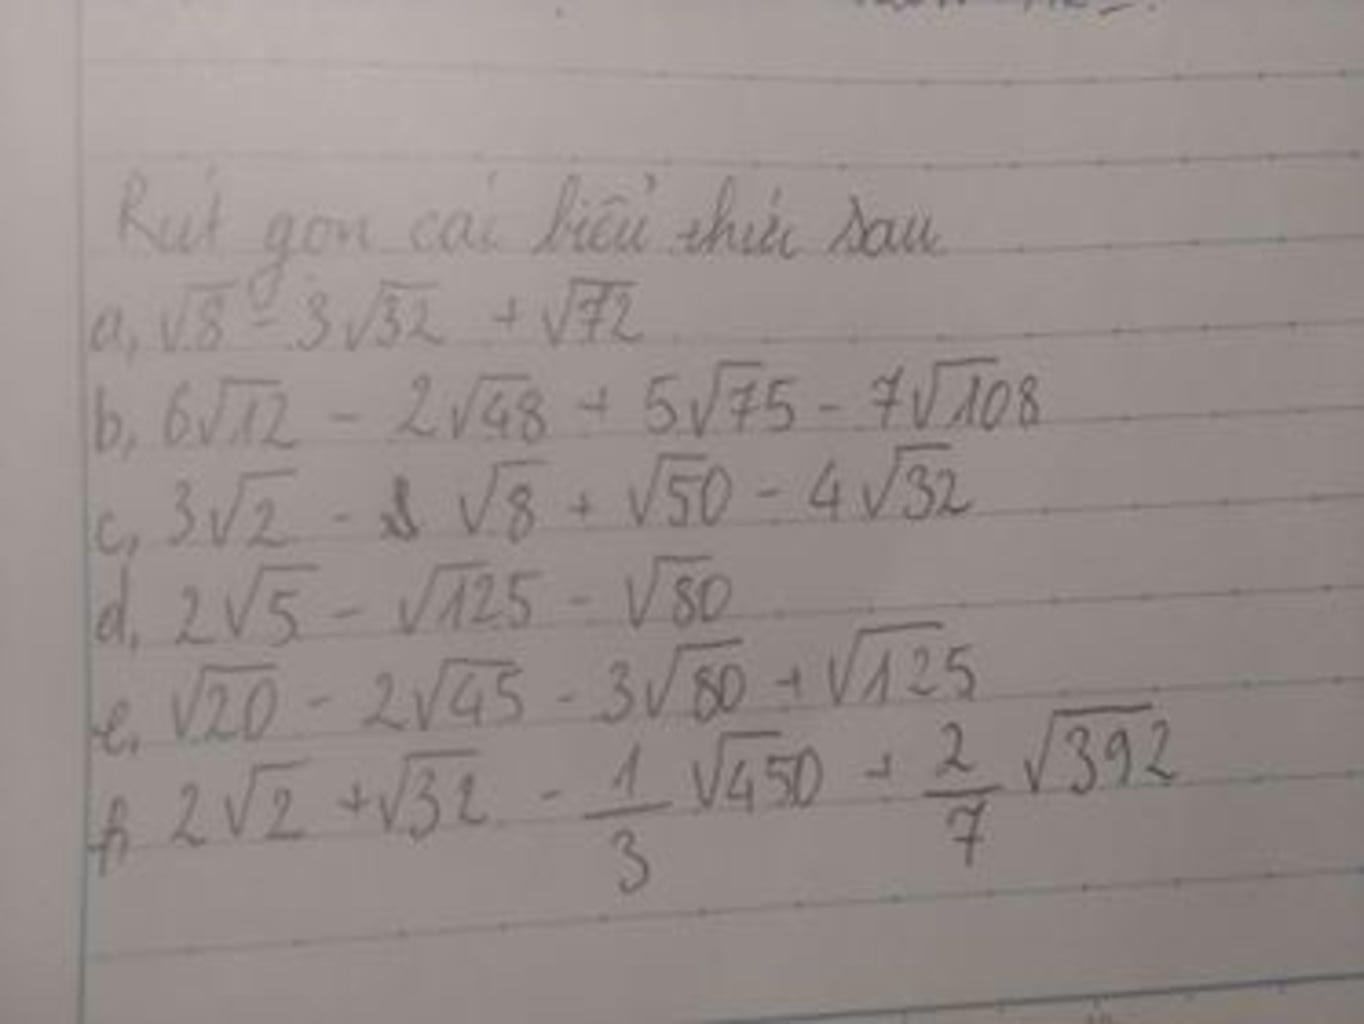 Rút gọn các biểu thức sau
a, √8 - 3√32 + √72
b, 6√12 - 2√48 + 5√75 - 7√108
c, 3√2 - √8 + √50 - 4√32
d, 2√5 - √125 - √80
e, √20 - 2√45 - 3√80 + √125
f, 2√2 + √32 - 1/3 √450 + 2/7 √392